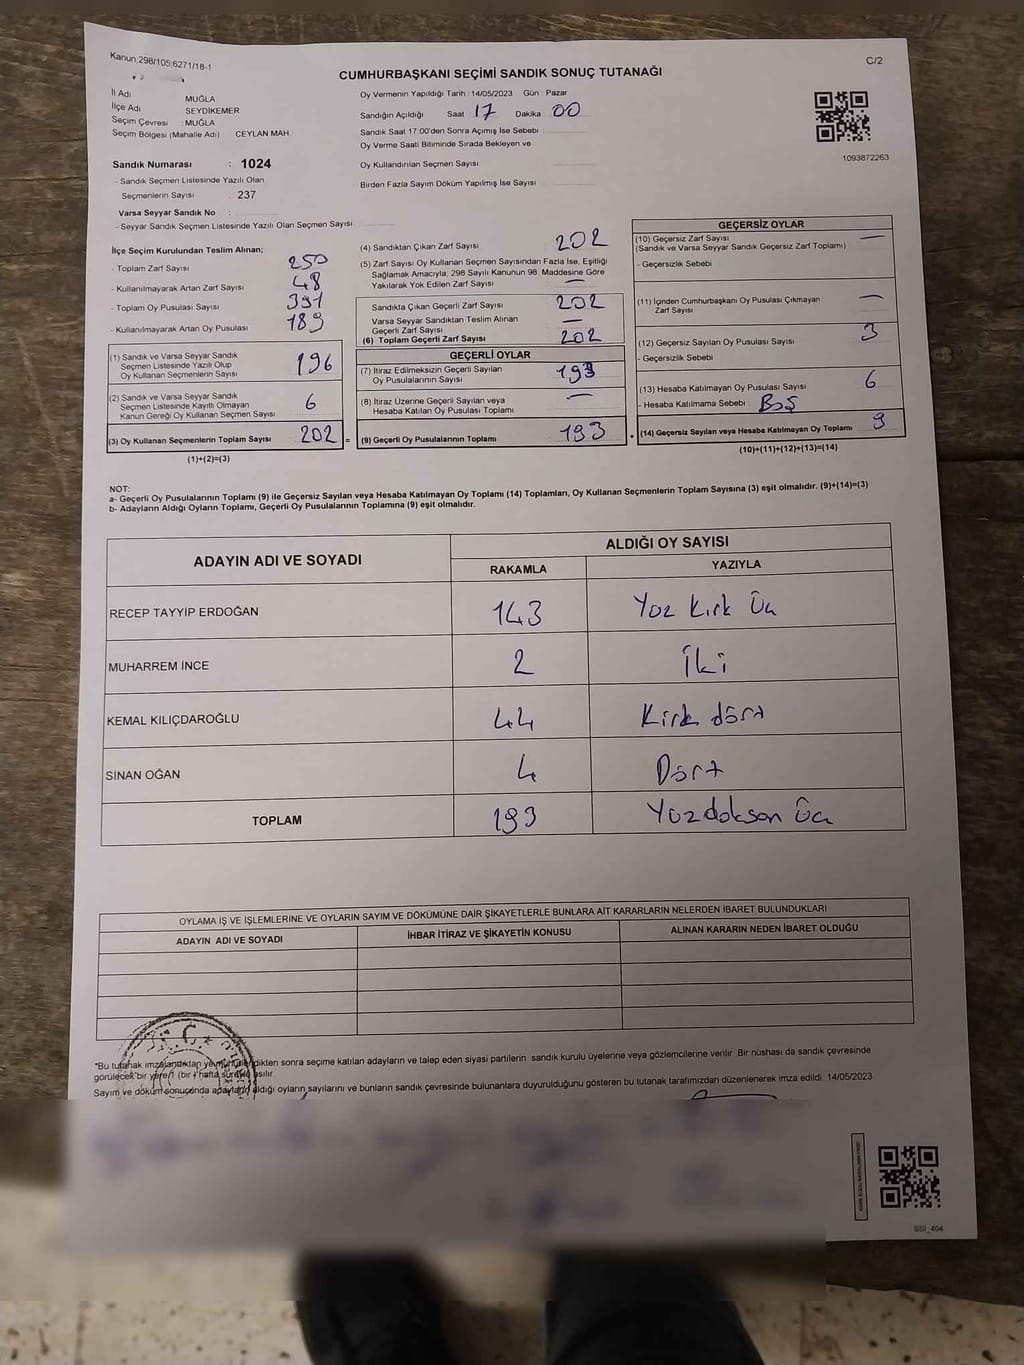 Kanun:298/105;6271/18-1
C/2
CUMHURBAŞKANI SEÇİMİ SANDIK SONUÇ TUTANAĞI
İl Adı MUĞLA
İlçe Adı SEYDİKEMER
Seçim Çevresi : MUĞLA
Seçim Bölgesi (Mahalle Adı) CEYLAN MAH.
Sandık Numarası : 1024
- Sandık Seçmen Listesinde Yazılı Olan
Seçmenlerin Sayısı : 237
Varsa Seyyar Sandık No :
- Seyyar Sandık Seçmen Listesinde Yazılı Olan Seçmen Sayısı
Oy Vermenin Yapıldığı Tarih : 14/05/2023 Gün : Pazar
Sandığın Açıldığı Saat 17 Dakika 00
Sandık Saat 17:00'den Sonra Açımış İse Sebebi
Oy Verme Saati Bitiminde Sırada Bekleyen ve
Oy Kullandırılan Seçmen Sayısı
Birden Fazla Sayım Döküm Yapılmış İse Sayısı
1093872263
İlçe Seçim Kurulundan Teslim Alınan;
- Toplam Zarf Sayısı 250
- Kullanılmayarak Artan Zarf Sayısı 48
- Toplam Oy Pusulası Sayısı 391
- Kullanılmayarak Artan Oy Pusulası 189
(1) Sandık ve Varsa Seyyar Sandık
Seçmen Listesinde Yazılı Olup
Oy Kullanan Seçmenlerin Sayısı 196
(2) Sandık ve Varsa Seyyar Sandık
Seçmen Listesinde Kayıtlı Olmayan
Kanun Gereği Oy Kullanan Seçmen Sayısı 6
(3) Oy Kullanan Seçmenlerin Toplam Sayısı 202 =
(1)+(2)=(3)
(4) Sandıktan Çıkan Zarf Sayısı 202
(5) Zarf Sayısı Oy Kullanan Seçmen Sayısından Fazla İse, Eşitliği
Sağlamak Amacıyla; 298 Sayılı Kanunun 98. Maddesine Göre
Yakılarak Yok Edilen Zarf Sayısı —
Sandıkta Çıkan Geçerli Zarf Sayısı 202
Varsa Seyyar Sandıktan Teslim Alınan
Geçerli Zarf Sayısı —
(6) Toplam Geçerli Zarf Sayısı 202
GEÇERLİ OYLAR
(7) İtiraz Edilmeksizin Geçerli Sayılan
Oy Pusulalarının Sayısı 193
(8) İtiraz Üzerine Geçerli Sayılan veya
Hesaba Katılan Oy Pusulası Toplamı —
(9) Geçerli Oy Pusulalarının Toplamı 193 +
GEÇERSİZ OYLAR
(10) Geçersiz Zarf Sayısı —
(Sandık ve Varsa Seyyar Sandık Geçersiz Zarf Toplamı)
- Geçersizlik Sebebi
(11) İçinden Cumhurbaşkanı Oy Pusulası Çıkmayan
Zarf Sayısı —
(12) Geçersiz Sayılan Oy Pusulası Sayısı 3
- Geçersizlik Sebebi
(13) Hesaba Katılmayan Oy Pusulası Sayısı 6
- Hesaba Katılmama Sebebi : Boş
(14) Geçersiz Sayılan veya Hesaba Katılmayan Oy Toplamı 9
(10)+(11)+(12)+(13)=(14)
NOT:
a- Geçerli Oy Pusulalarının Toplamı (9) ile Geçersiz Sayılan veya Hesaba Katılmayan Oy Toplamı (14) Toplamları, Oy Kullanan Seçmenlerin Toplam Sayısına (3) eşit olmalıdır. (9)+(14)=(3)
b- Adayların Aldığı Oyların Toplamı, Geçerli Oy Pusulalarının Toplamına (9) eşit olmalıdır.
ADAYIN ADI VE SOYADI ALDIĞI OY SAYISI
RAKAMLA YAZIYLA
RECEP TAYYİP ERDOĞAN 143 Yüz Kırk Üç
MUHARREM İNCE 2 İki
KEMAL KILIÇDAROĞLU 44 Kırk dört
SİNAN OĞAN 4 Dört
TOPLAM 193 Yüzdoksan Üç
OYLAMA İŞ VE İŞLEMLERİNE VE OYLARIN SAYIM VE DÖKÜMÜNE DAİR ŞİKAYETLERLE BUNLARA AİT KARARLARIN NELERDEN İBARET BULUNDUKLARI
ADAYIN ADI VE SOYADI İHBAR İTİRAZ VE ŞİKAYETİN KONUSU ALINAN KARARIN NEDEN İBARET OLDUĞU
T.C.
*Bu tutanak imzalandıktan ve mühürlendikten sonra seçime katılan adayların ve talep eden siyasi partilerin sandık kurulu üyelerine veya gözlemcilerine verilir. Bir nüshası da sandık çevresinde
görülecek bir yere 1 (bir) hafta süreyle asılır.
Sayım ve döküm sonuçunda adayların aldığı oyların sayılarını ve bunların sandık çevresinde bulunanlara duyurulduğunu gösteren bu tutanak tarafımızdan düzenlenerek imza edildi. 14/05/2023
SSİ_404